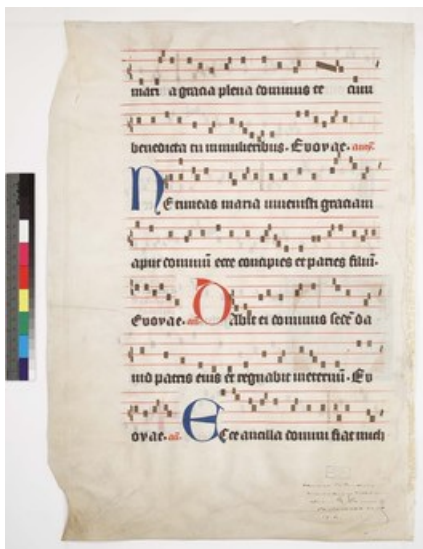 mari a gracia plena dominus te cum
benedicta tu in mulieribus. Evovae.
Ne timeas maria invenisti graciam
aput dominū ecce concipies et paries filiū.
Evovae. Dabit ei dominus sedē da
vid patris eius et regnabit ineternū. Ev
ovae. Ecce ancilla domini fiat mich